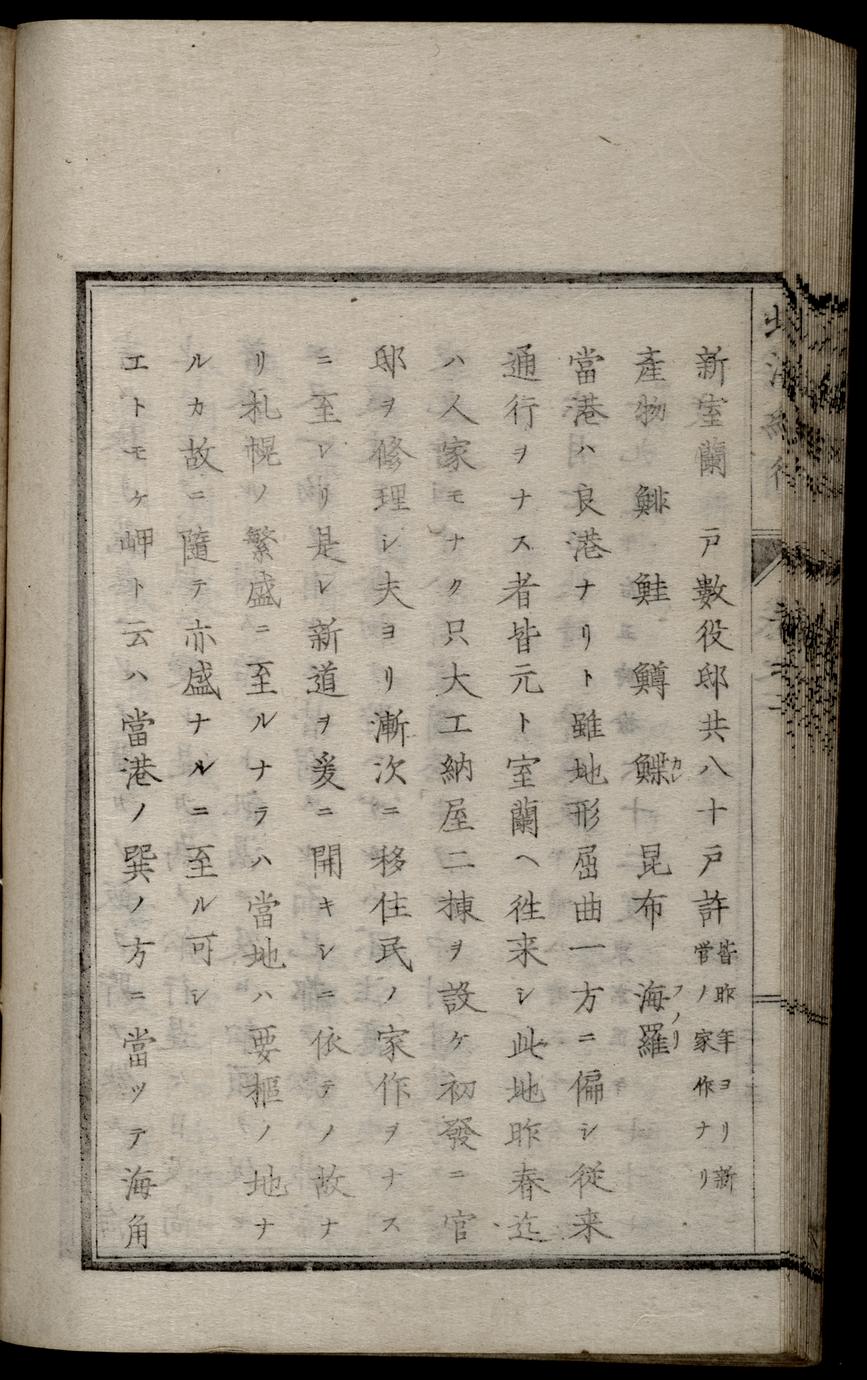 新室蘭　戸數役邸共八十戸許皆昨年ヨリ新營ノ家作ナリ
產物　鯡　鮭　鱒　鰈カレ　昆布　海羅フノリ
當港ハ良港ナリト雖地形屈曲一方ニ偏シ従来
通行ヲナス者皆元ト室蘭ヘ徃来シ此地昨春迄
ハ人家モナク只大工納屋二棟ヲ設ケ初發ニ官
邸ヲ修理シ夫ヨリ漸次ニ移住民ノ家作ヲナス
ニ至レリ是レ新道ヲ爰ニ開キシニ依テノ故ナ
リ札幌ノ繁盛ニ至ルナラハ當地ハ要樞ノ地ナ
ルカ故ニ隨テ亦盛ナルニ至ル可シ
エトモケ岬ト云ハ當港ノ巽ノ方ニ當ツテ海角